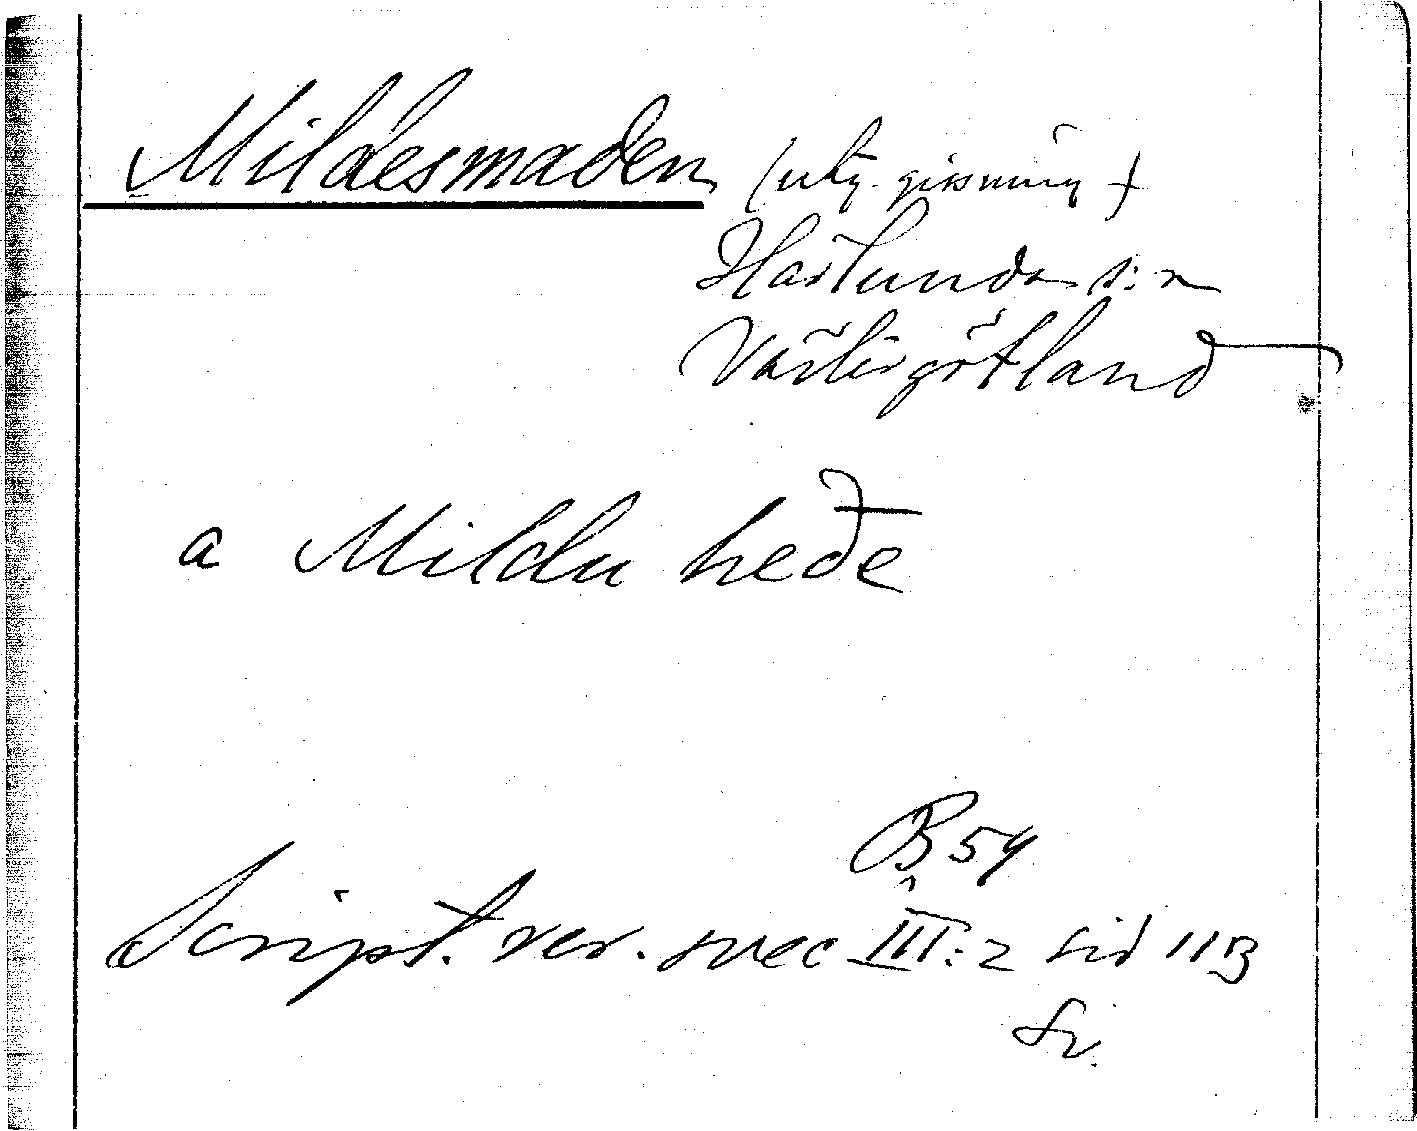 Mildesmaden (utg. gissning)
Härlunda s:n
Västergötland
a Mildu heðe
B 54
Script. rer. svec III:2 sid 113